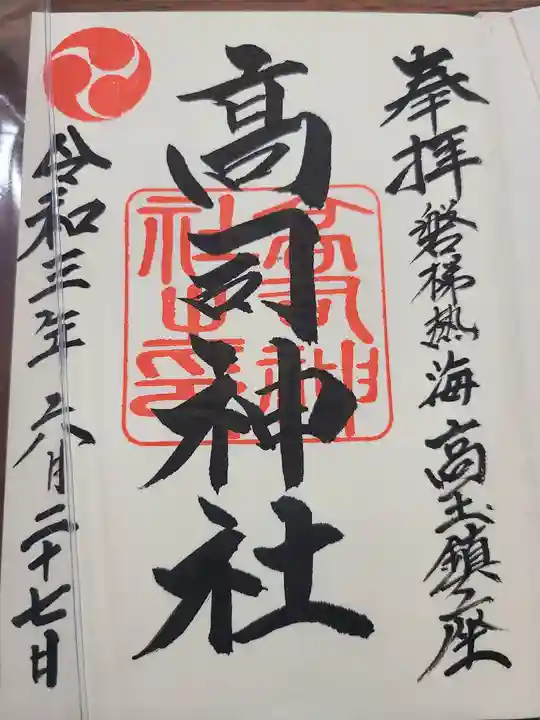 奉拝 磐梯熱海高玉鎮座
高司神社
高司神社之印
令和三年六月二十七日